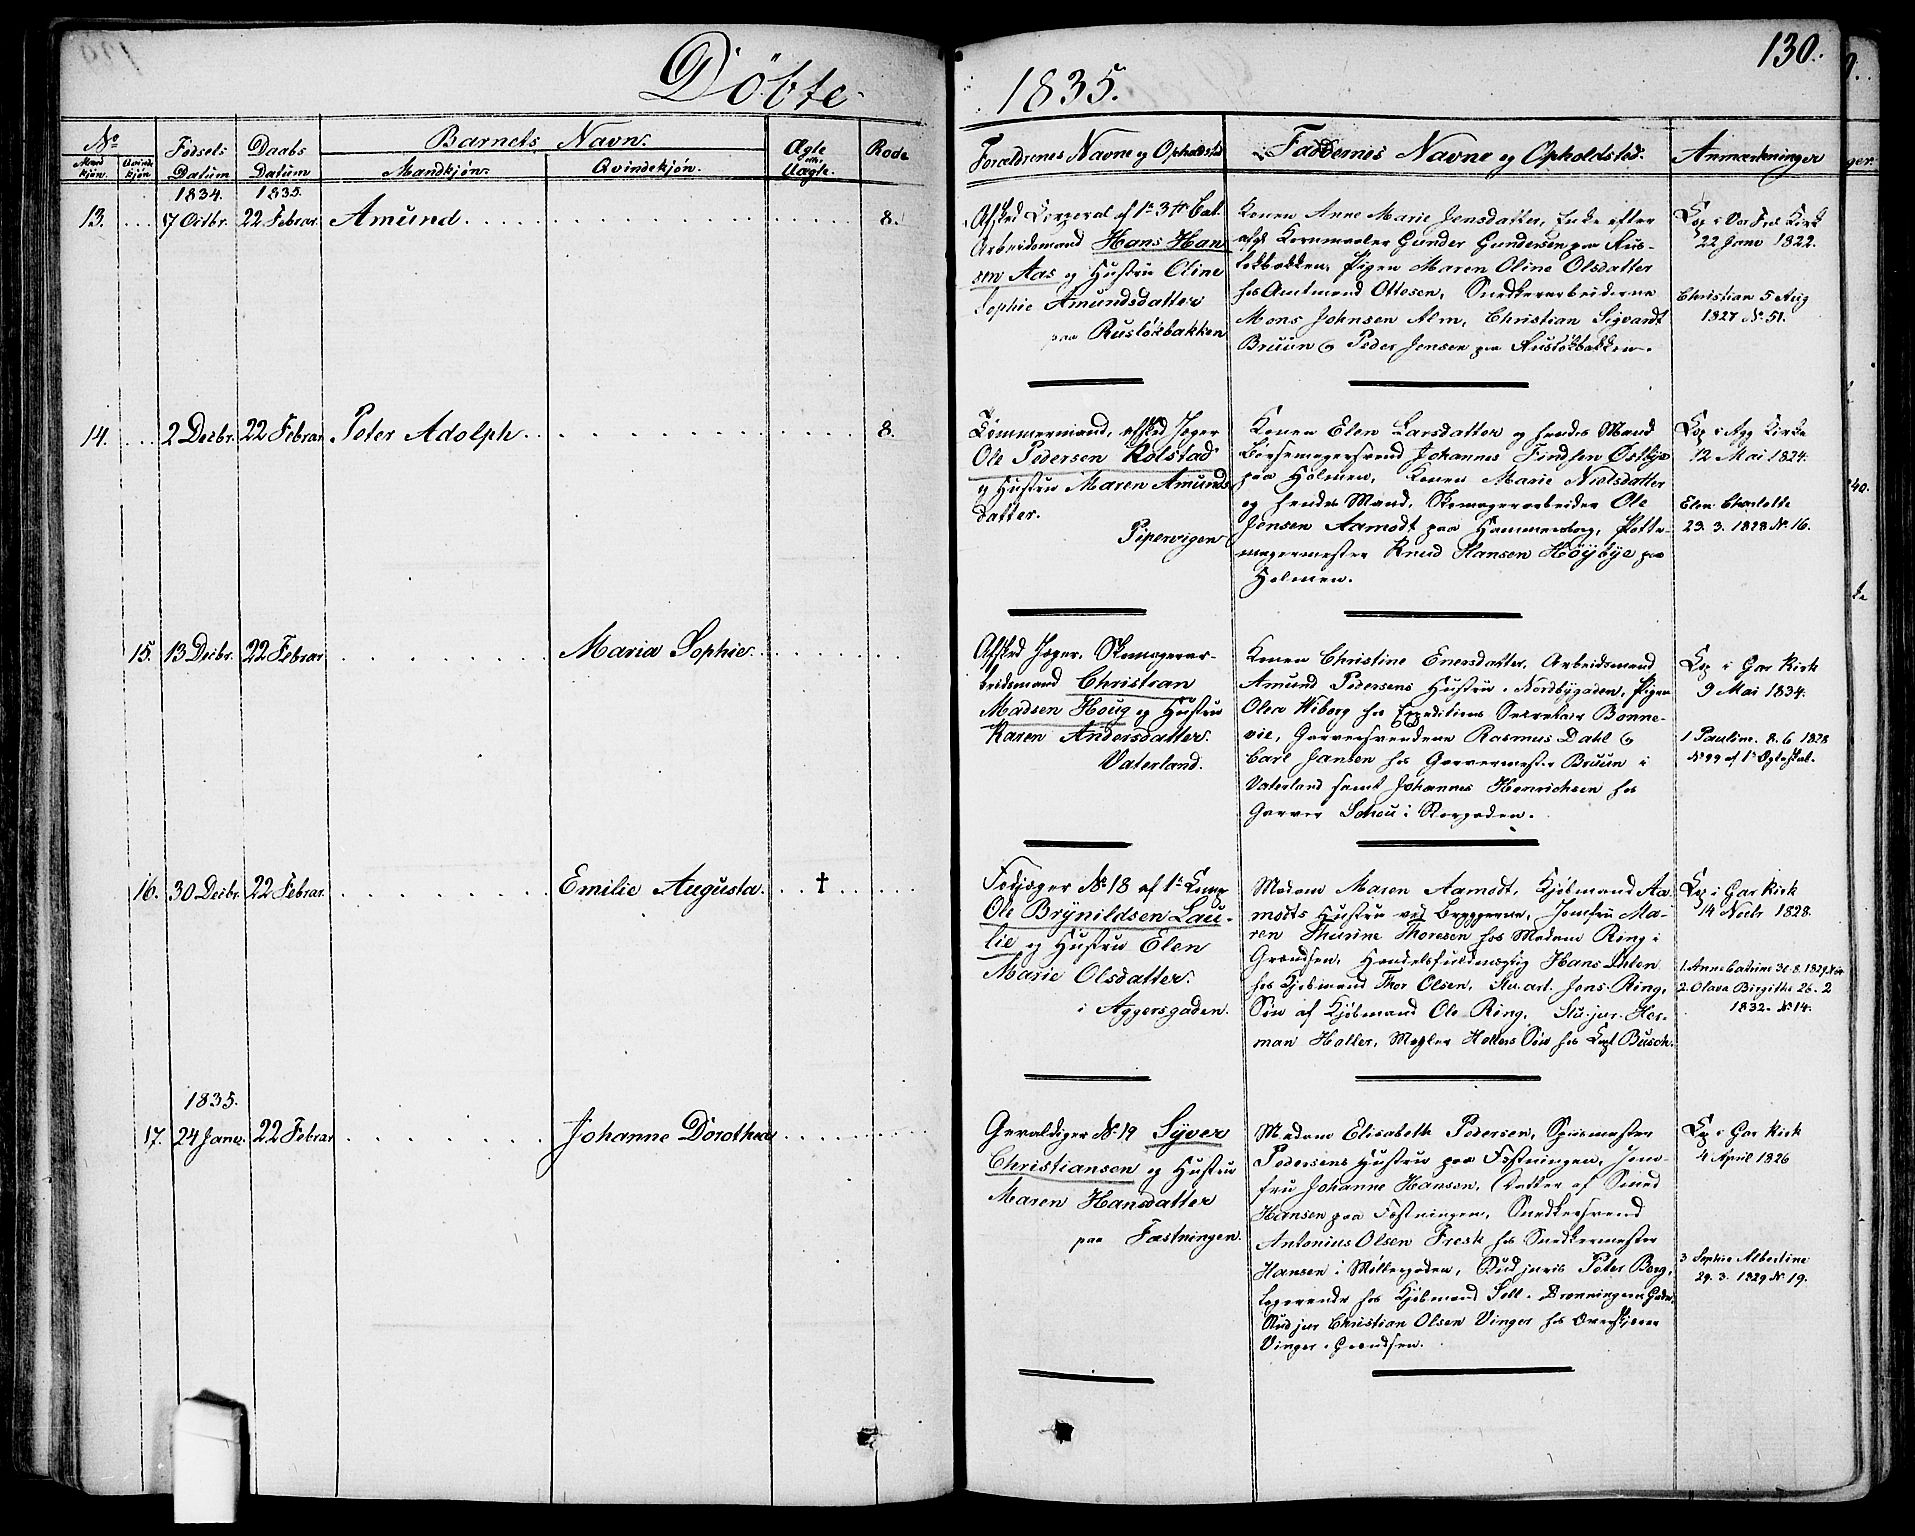 Döbte
1835.
130.
No
Mand kjön. Qvinde kjön
Fødsels Datum
Daabs Datum
Barnets Navn.
Mandkjön. Qvindekjön.
Ægte eller Uægte.
Rode
Forældrenes Navne og Opholdsted
Faddernes Navne og Opholdsted.
Anmærkninger
1834. 1835.
13. 17 Octbr. 22 Febrar. Amund 8.
Afsked Corporal af 1te 3die Bat.
Arbeidsmand Hans Han
sen Aas og Hustru Oline
Sophie Amundsdatter
paa Ruslökbakken
Konen Anne Marie Jensdatter, Enke efter
afg. Kornmaaler Gunder Gundersen paa Rus-
lökbakken, Pigen Maren Oline Olsdatter
hos Amtmand Ottesen, Snedkerarbeiderne
Mons Johnsen Alm, Christian Sigvardt
Bruun og Peder Jensen paa Ruslökbakken.
Cop i Vor Frel Kirk
22 Janv 1822.
Christian 5 Aug
1827 No 51.
14. 2 Decbr. 22 Febrar Peter Adolph 8.
Tömmermand, afsked Jæger
Ole Pedersen Kolstad
og Hustru Maren Amunds
datter.
Pipervigen
Konen Elen Larsdatter og hendes Mand
Børsemagersvend Johannes Findsen Østbye
paa Holmen, Konen Marie Nielsdatter
og hendes Mand, Skomagerarbeider Ole
Jensen Aamodt paa Hammersborg, Potte-
magermester Knud Hansen Höybye paa
Holmen.
Cop i Agg Kirke
12 Mai 1824.
Elen Charlotte
23. 3. 1828 No 16.
15. 13 Decbr. 22 Febrar Maria Sophie.
Afsked Jæger, Skomagerar-
beidsmand Christian
Madsen Houg og Hustru
Karen Andersdatter.
Vaterland.
Konen Christine Enersdatter, Arbeidsmand
Amund Pedersens Hustru i Nordbygaden, Pigen
Olea Wiborg hos Expeditions Secretair Bonne-
vie, Garversvendene Rasmus Dahl og
Carl Jansen hos Garvermester Bruun i
Vaterland samt Johannes Henrichsen hos
Garver Schou i Storgaden.
Cop i Gar Kirk
9 Mai 1834.
1 Pauline. 8. 6 1828
No 99 af 1te Ægteskab.
16. 30 Decbr. 22 Febrar. Emilie Augusta. †
Fodjæger No 18 af 1te Comp
Ole Brynildsen Lau-
lie og Hustru Elen
Marie Olsdatter.
i Aggersgaden.
Madam Maren Aamodt, Kjöbmand Aa
modts Hustru ved Bryggerne, Jomfru Ma-
ren Thurine Thoresen hos Madam Ring i
Grændsen, Handelsfuldmægtig Hans Ihlen
hos Kjöbmand Thor Olsen, Stu. art. Jens Ring,
Sön af Kjöbmand Ole Ring, Stu. jur. Her-
man Holler, Megler Hollers Sön hos Capt Busch.
Cop i Gar Kirk
14 Novbr 1828.
1. Anne Catrine 30. 8. 1829
2. Olava Birgithe 26. 2
1832. No 14.
1835.
17. 24 Janv. 22 Febrar Johanne Dorothea
Gevaldiger No 19 Syver
Christiansen og Hustru
Maren Hansdatter
paa Fæstningen.
Madam Elisabeth Pedersen, Spiismester
Pedersens Hustru paa Fæstningen, Jom-
fru Johanne Hansen, Datter af Smed
Hansen paa Fæstningen, Snedkersvend
Antonius Olsen Fresk hos Snedkermester
Hansen i Möllergaden, Stud juris Peter Borg,
Logerende hos Kjöbmand Sell i Dronningens Gade,
Stud jur Christian Olsen Vinger hos Overkjærer
Vinger i Grændsen.
Cop i Gar Kirk
4 April 1826
3 Sophie Albertine
29. 3. 1829 No 19.